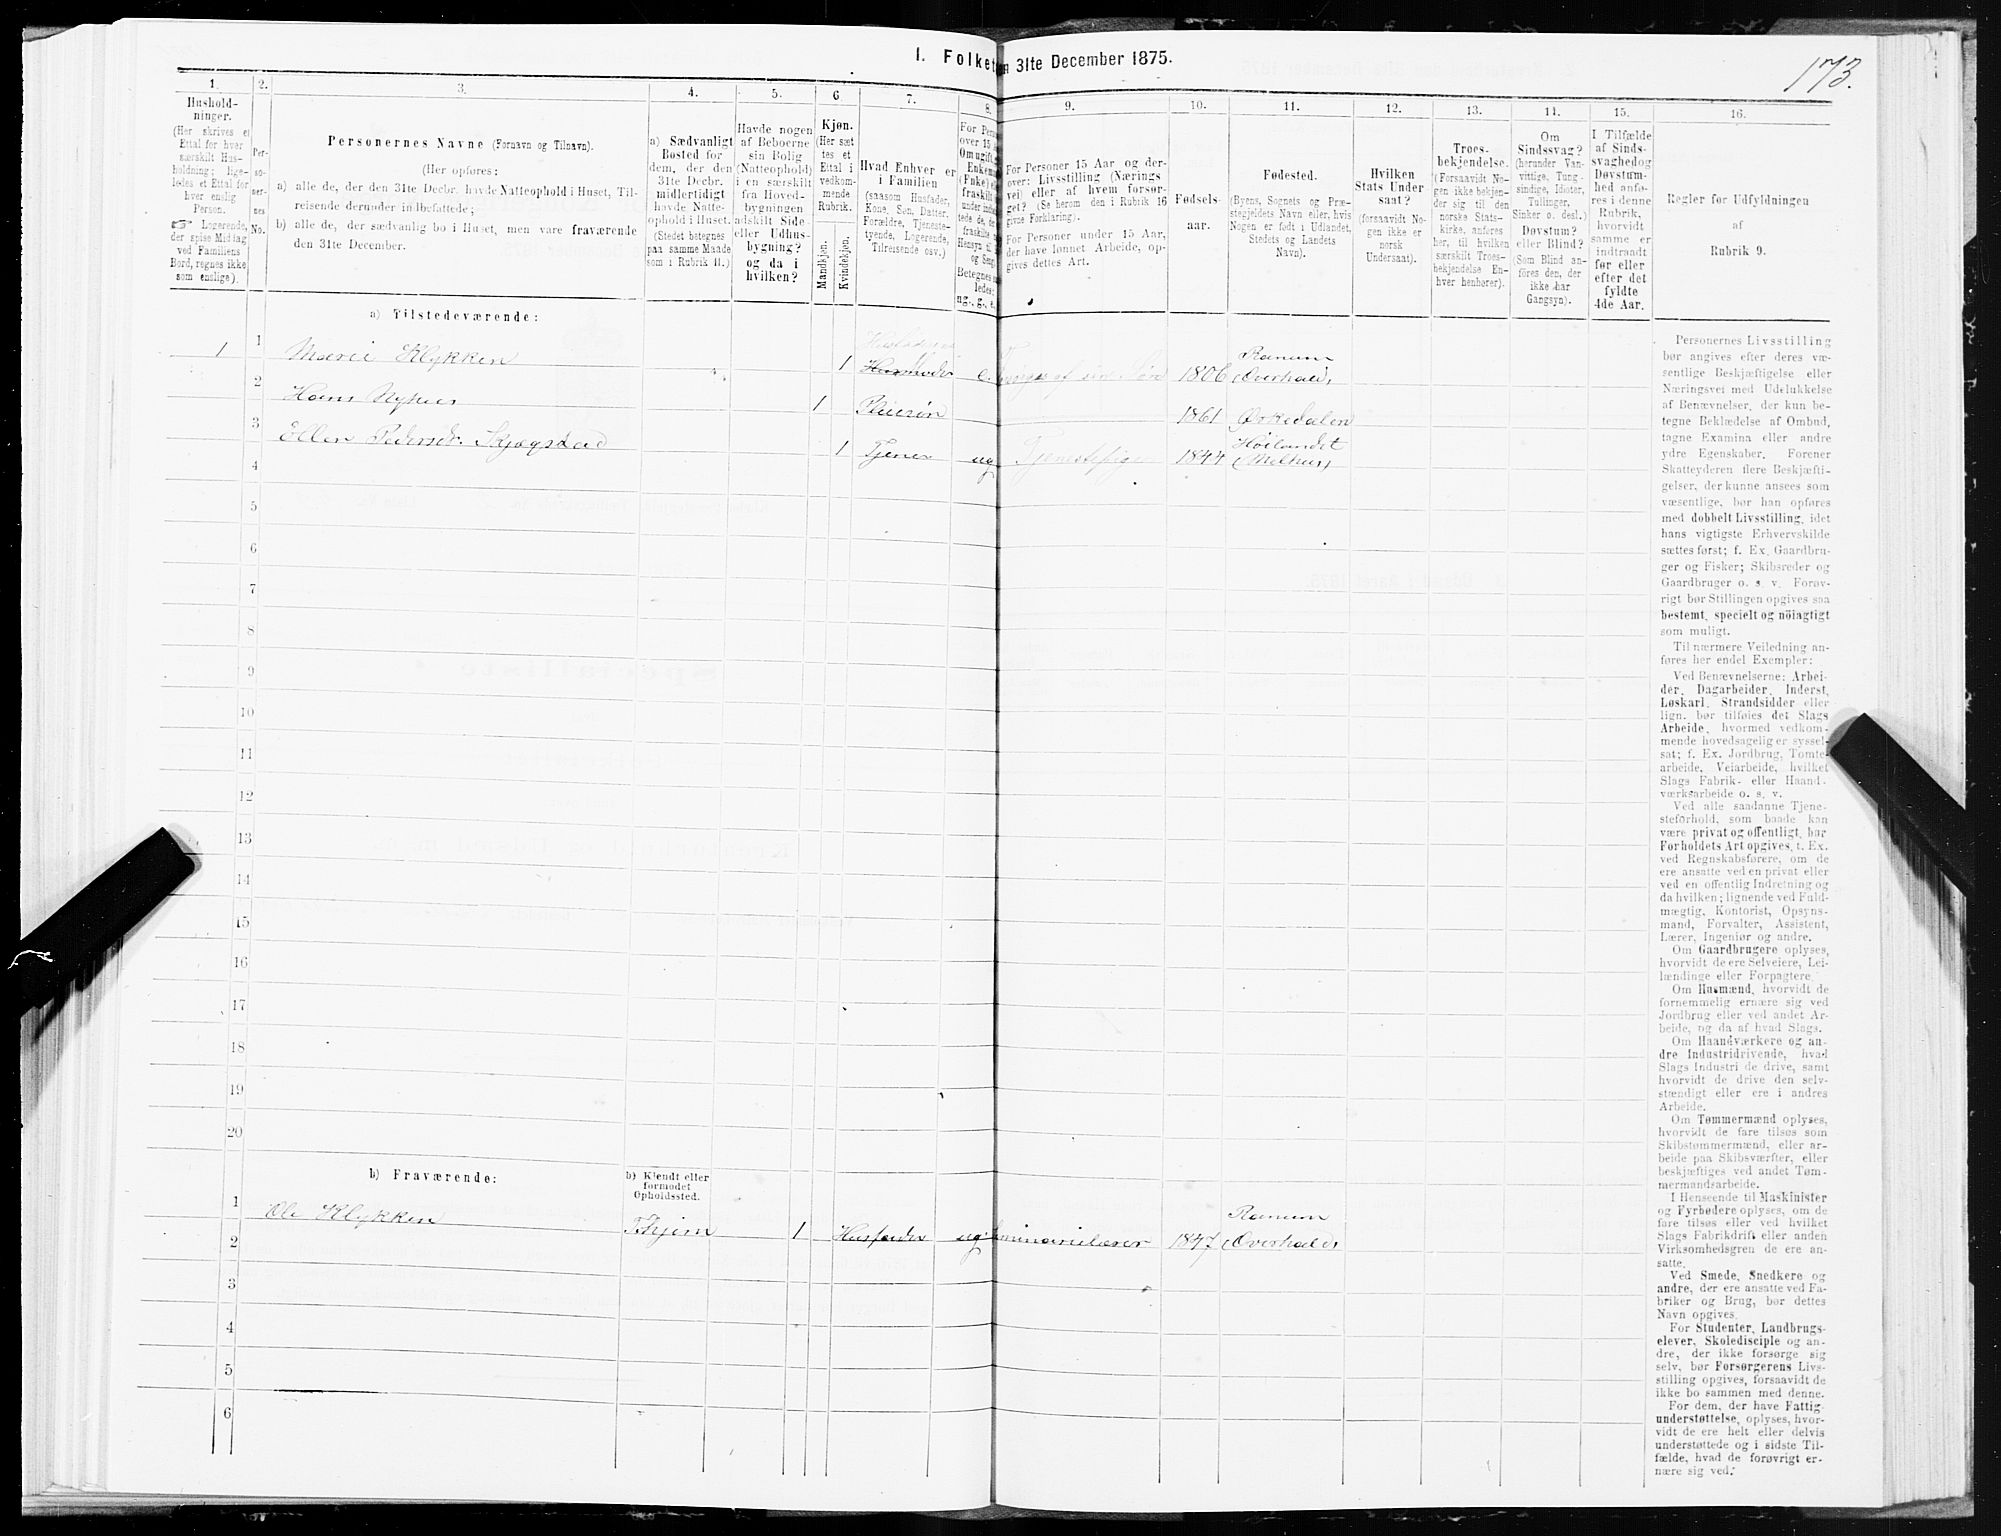 173.
I. Folket n 31te December 1875.
1. 2. 3. 4. 5. 6. 7. 8. 9. 10. 11. 12. 13. 14. 15. 16.
Hushold-
ninger.
(Her skrives et
Ettal for hver
særskilt Hus-
holdning; lige-
ledes et Ettal for
hver enslig
Person.
☞ Logerende,
der spise Middag
ved Familiens
Bord, regnes ikke
som enslige).
Per-
so-
ner-
nes
No.
Personernes Navne (Fornavn og Tilnavn).
(Her opføres:
a) alle de, der den 31te Decbr. havde Natteophold i Huset, Til-
reisende derunder indbefattede;
b) alle de, der sædvanlig bo i Huset, men vare fraværende
den 31te December.
a) Sædvanligt
Bosted for
dem, der den
31te Decbr.
midlertidigt
havde Natte-
ophold i Huset.
(Stedet betegnes
paa samme Maade
som i Rubrik 11.)
Havde nogen
af Beboerne
sin Bolig
(Natteophold)
i en særskilt
fra Hoved-
bygningen
adskilt Side-
eller Udhus-
bygning?
og da i
hvilken?
Kjøn.
(Her sæt-
tes et
Ettal i
vedkom-
mende
Rubrik.
Mandkjøn.
Kvindekjøn.
Hvad Enhver er
i Familien
(saasom Husfader,
Kone, Søn, Datter,
Forældre, Tjeneste-
tyende, Logerende,
Tilreisende osv.)
For Pers
over 15
Om ugift,
Enkem
(Enke) e
fraskilt
Betegnes
ledes:
ug., g., e.
For Personer 15 Aar og der-
over: Livsstilling (Nærings
vei) eller af hvem forsør-
get? (Se herom den i Rubrik 16
givne Forklaring).
For Personer under 15 Aar,
der have lønnet Arbeide, op-
gives dettes Art.
Fødsels-
aar.
Fødested.
(Byens, Sognets og Præ-
stegjeldets Navn eller, hvis
Nogen er født i Udlandet,
Stedets og Landets
Navn).
Hvilken
Stats Under
saat?
(forsaavidt No-
gen ikke er
norsk
Undersaat).
Troes-
bekjendelse.
(Forsaavidt No-
gen ikke bekjen-
der sig til den
norske Stats-
kirke, anføres
her, til hvilken
særskilt Troes-
bekjendelse En-
hver henhører).
Om
Sindssvag?
(herunder Van-
vittige, Tung-
sindige, Idioter,
Tullinger,
Sinker o. desl.)
Døvstum?
eller Blind?
(Som Blind an-
føres den, der
ikke har
Gangsyn).
I Tilfælde
af Sinds-
svaghed og
Døvstum-
hed anfø-
res i denne
Rubrik,
hvorvidt
samme er
indtraadt
før eller
efter det
fyldte
4de Aar.
Regler for Udfyldningen
af
Rubrik 9.
a) Tilstedeværende:
1 1 Marie Klykken 1 Husmoder e. Forsørges af sin Søn 1806 Ranum (Overhald)
2 Hans Nyhus 1 Pleiesøn 1861 Ørkedalen
3 Ellen Pedersdr. Skjøgstad 1 Tjener ug Tjenestepige 1844 Høilandet (Melhus)
4
5
6
7
8
9
10
11
12
13
14
15
16
17
18
19
20
b) Fraværende:
b) Kjendt eller
formodet
Opholdssted.
1 Ole Klykken Thjem 1 Husfader ug. Seminarielærer 1847 Ranum (Overhald)
2
3
4
5
6
Personernes Livsstilling
bør angives efter deres væ-
sentlige Beskjæftigelse eller
Næringsvei med Udelukkelse
af Benævnelser, der kun be-
tegne Beklædelse af Ombud,
tagne Examina eller andre
ydre Egenskaber. Forener
Skatteyderen flere Beskjæfti-
gelser, der kunne ansees som
væsentlige, bør han opføres
med dobbelt Livsstilling, idet
hans vigtigste Erhvervskilde
sættes først; f. Ex. Gaardbru-
ger og Fisker; Skibsreder og
Gaardbruger o. s. v. Forøv-
rigt bør Stillingen opgives saa
bestemt, specielt og nöiagtigt
som muligt.
Til nærmere Veiledning an-
føres her endel Exempler:
Ved Benævnelserne: Arbei-
der, Dagarbeider, Inderst,
Løskarl, Strandsidder eller
lign. bør tilføies det Slags
Arbeide, hvormed vedkom-
mende hovedsagelig er syssel-
sat; f. Ex. Jordbrug, Tomte-
arbeide, Veiarbeide, hvilket
Slags Fabrik- eller Haand-
værksarbeide o. s. v.
Ved alle saadanne Tjene-
steforhold, som baade kan
være privat og offentligt, bør
Forholdets Art opgives, t. Ex.
ved Regnskabsførere, om de
ere ansatte ved en privat eller
ved en offentlig Indretning og
da hvilken; lignende ved Fuld-
mægtig, Kontorist, Opsyns-
mand, Forvalter, Assistent,
Lærer, Ingeniør og andre.
Om Gaardbrugere oplyses,
hvorvidt de ere Selveiere, Lei-
lændinge eller Forpagtere.
Om Husmænd, hvorvidt de
fornemmelig ernære sig ved
Jordbrug eller ved andet Ar-
beide, og da af hvad Slags.
Om Haandværkere og an-
dre Industridrivende, hvad
Slags Industri de drive, samt
hvorvidt de drive den selv-
stændigt eller ere i andres
Arbeide.
Om Tømmermænd oplyses,
hvorvidt de fare tilsøs som
Skibstømmermænd, eller ar-
beide paa Skibsværfter, eller
beskjæftiges ved andet Tøm-
mermandsarbeide.
I Henseende til Maskinister
og Fyrbødere oplyses, om de
fare tilsøs eller ved hvilket
Slags Fabrikdrift eller anden
Virksomhedsgren de ere an-
satte.
Ved Smede, Snedkere og
andre, der ere ansatte ved Fa-
briker og Brug, bør dettes
Navn opgives.
For Studenter, Landbrugs-
elever, Skoledisciple og an-
dre, der ikke forsørge sig
selv, bør Forsørgerens Livs-
stilling opgives, forsaavidt de
ikke bo sammen med denne.
For dem, der have Fattig-
understøttelse, oplyses, hvor-
vidt de ere helt eller delvis
understøttede og i sidste Til-
fælde, hvad de forøvrigt er-
nære sig ved.